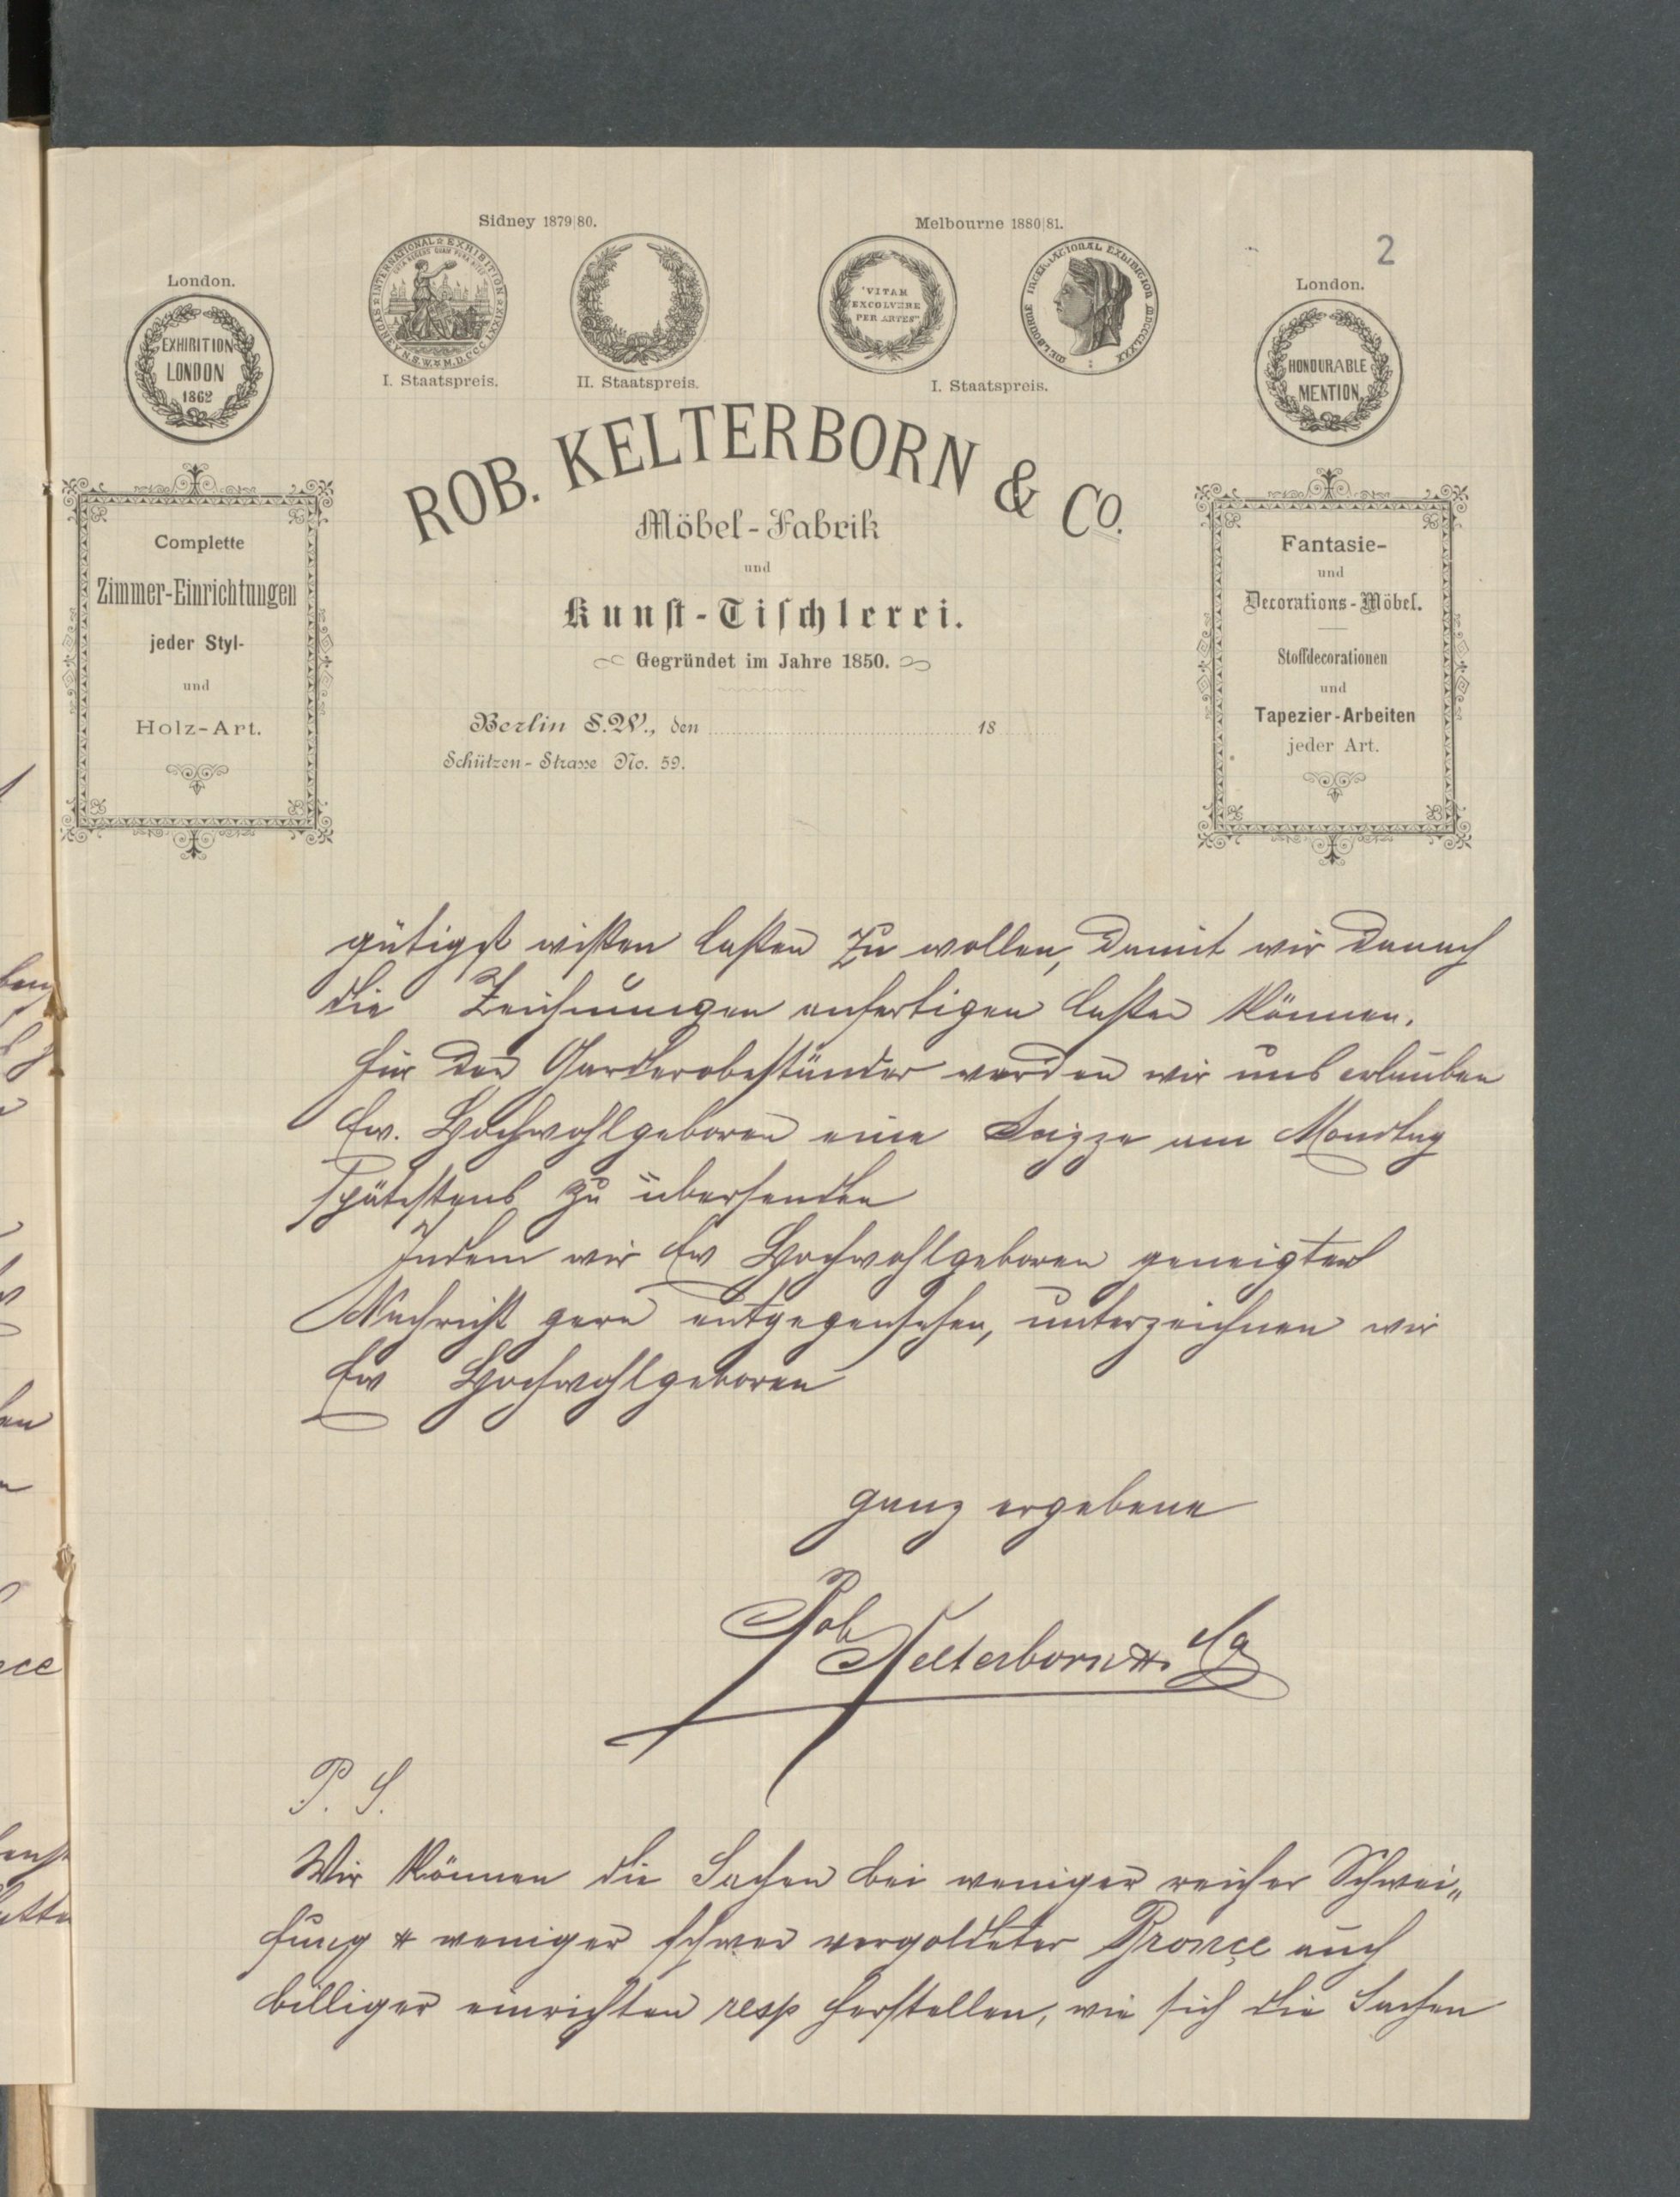 2
Sidney 1879|80.
Melbourne 1880|81.
London.
London.
SYDNEY INTERNATIONAL EXHIBITION
N.S.W. M.D.CCC LXXIX
'VITAM
EXCOLVERE
PER ARTES"
MELBOURNE INTERNATIONAL EXHIBITION MDCCCLXXX
EXHIBITION
LONDON
1862
HONOURABLE
MENTION
I. Staatspreis.
II. Staatspreis.
I. Staatspreis.
ROB. KELTERBORN & Co.
Möbel-Fabrik
und
Kunst-Tischlerei.
Gegründet im Jahre 1850.
Berlin S.W., den 18
Schützen-Strasse No. 59.
Complette
Zimmer-Einrichtungen
jeder Styl-
und
Holz-Art.
Fantasie-
und
Decorations-Möbel.
Stoffdecorationen
und
Tapezier-Arbeiten
jeder Art.
gütigst wißen laßen zu wollen, damit wir danach
die Zeichnungen anfertigen laßen können.
Für den Garderobeständer werden wir uns erlauben
Ew. Hochwohlgeboren eine Scizze am Mondtag
spätestens zu übersenden
Indem wir Ew Hochwohlgeboren geneigter
Nachricht gern entgegensehen, unterzeichnen wir
Ew Hochwohlgeboren
ganz ergebene
Rob Kelterborn & Co
P. S.
Wir können die Sachen bei weniger reicher Schwei„
fung & weniger schwer vergoldeter Bronçe auch
billiger einrichten resp herstellen, wie sich die Sachen